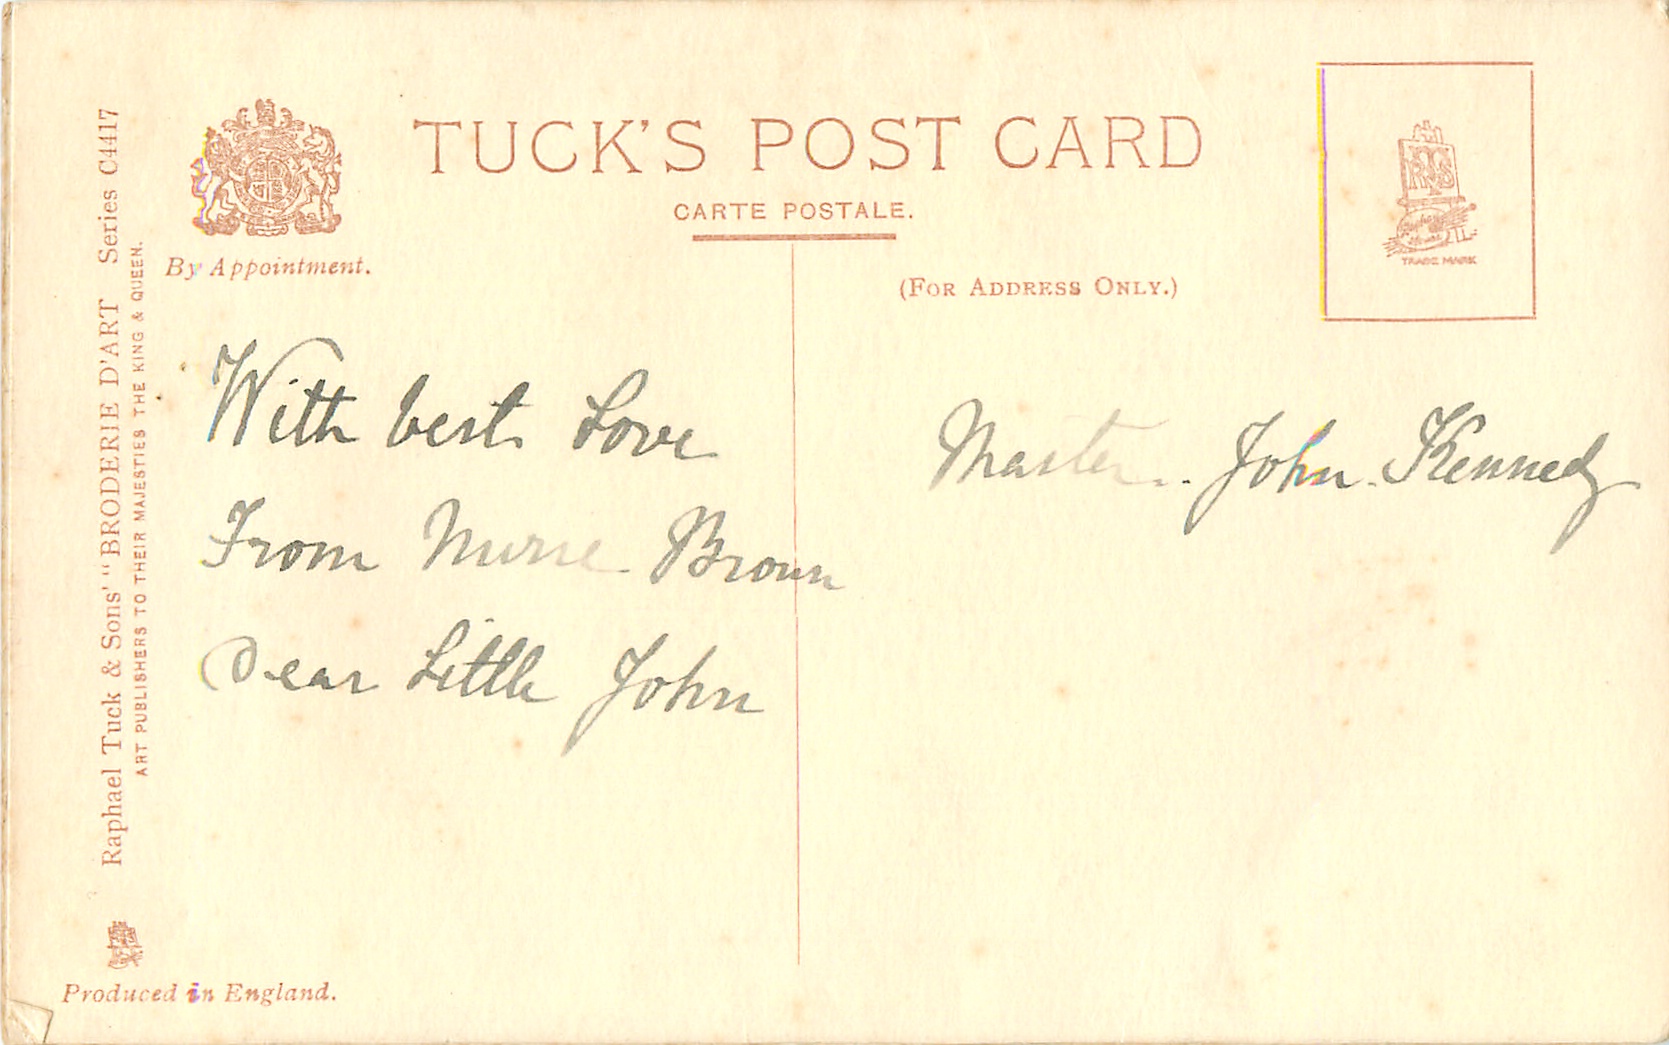 TUCK'S POST CARD
CARTE POSTALE.
By Appointment.
(FOR ADDRESS ONLY.)
TRADE MARK
Raphael Tuck & Sons' "BRODERIE D'ART Series C4417
ART PUBLISHERS TO THEIR MAJESTIES THE KING & QUEEN.
With best Love
From Nurse Brown
Dear Little John
Master. John. Kennedy
Produced in England.